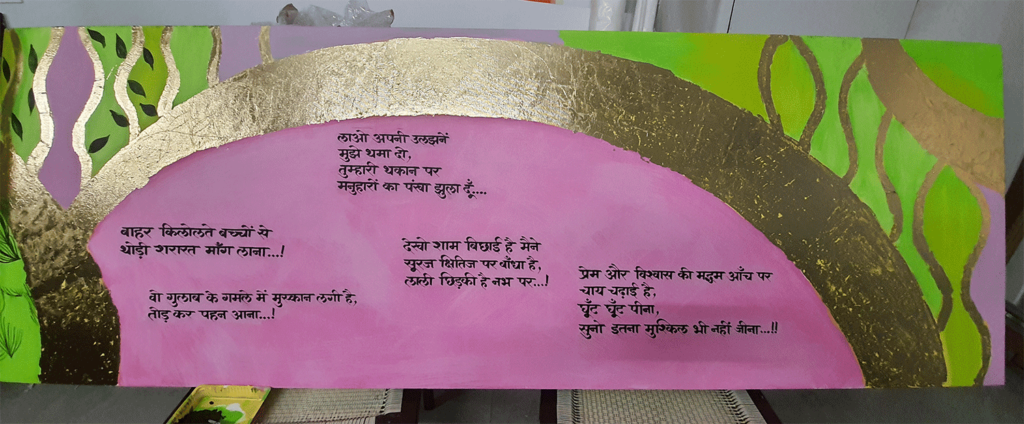 लाओ अपनी उलझनें
मुझे थमा दो,
तुम्हारी थकान पर
मनुहारों का पंखा झुला दूँ....
बाहर किलोलते बच्चों से
थोड़ी शरारत माँग लाना...!
वो गुलाब के गमले में मुस्कान लगी है,
तोड़ कर पहन आना...!
देखो शाम बिछाई है मैने
सूरज क्षितिज पर बाँधा है,
लाली छिड़की है नभ पर...!
प्रेम और विश्वास की मद्धम आँच पर
चाय चढ़ाई है,
घूँट घूँट पीना,
सुनो इतना मुश्किल भी नहीं जीना...!!